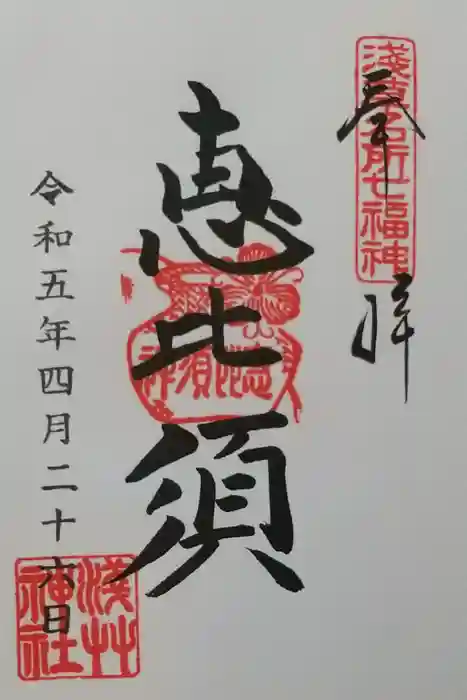 奉拝
淺草名所七福神
恵比須
恵比須神
令和五年四月二十六日
淺草神社